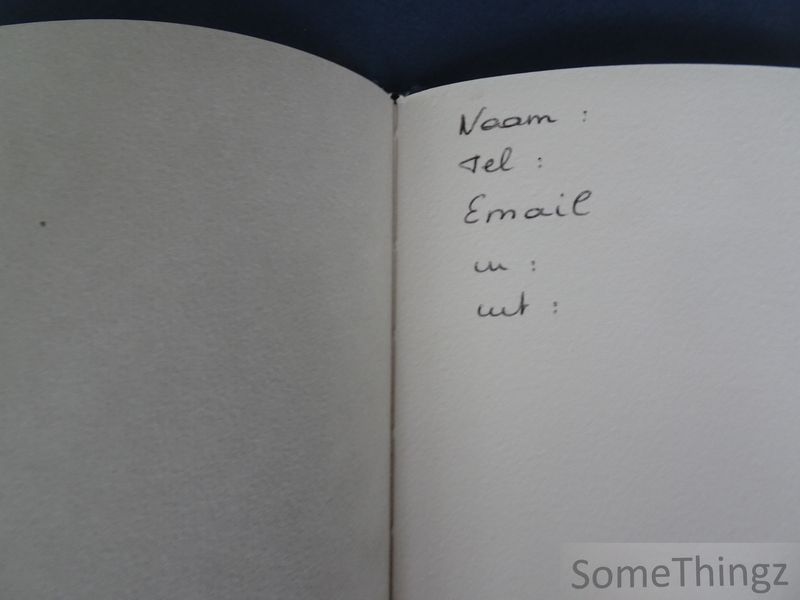 Naam :
Tel :
Email
in :
uit :
SomeThingz